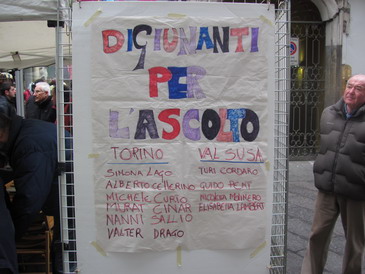 DIGIUNANTI
PER
L'ASCOLTO
TORINO
SIMONA LAGO
ALBERTO CELLERINO
MICHELE CURTO
MURAT CINAR
NANNI SALIO
VALTER DRAGO
VAL SUSA
TURI CORDARO
GUIDO
NICOLETTA
ELISABETTA